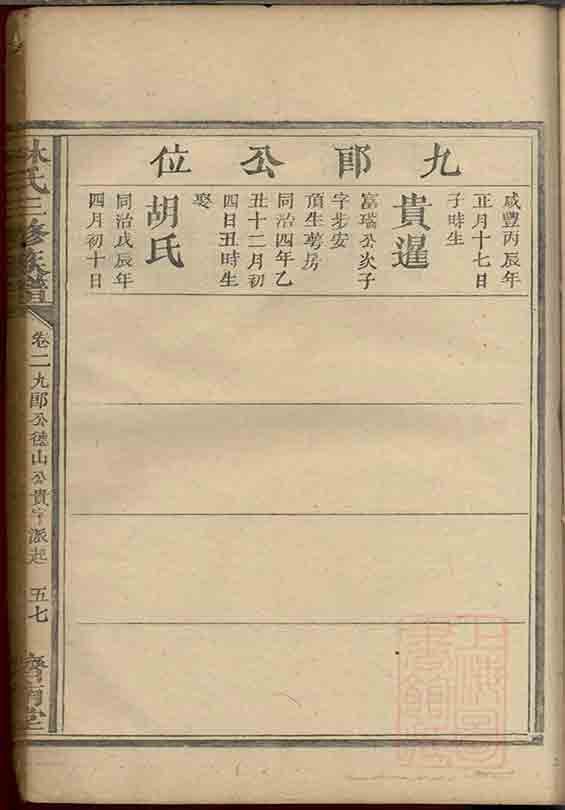 九郎公位
咸豐丙辰年
正月十七日
子時生
貴暹
富瑞公次子
字步安
頂生房
同治四年乙
丑十二月初
四日丑時生
娶
胡氏
同治戊辰年
四月初十日
林氏二修族譜
卷二
九郎公德山公貴字派起
五七
濟南堂
上海圖書館藏